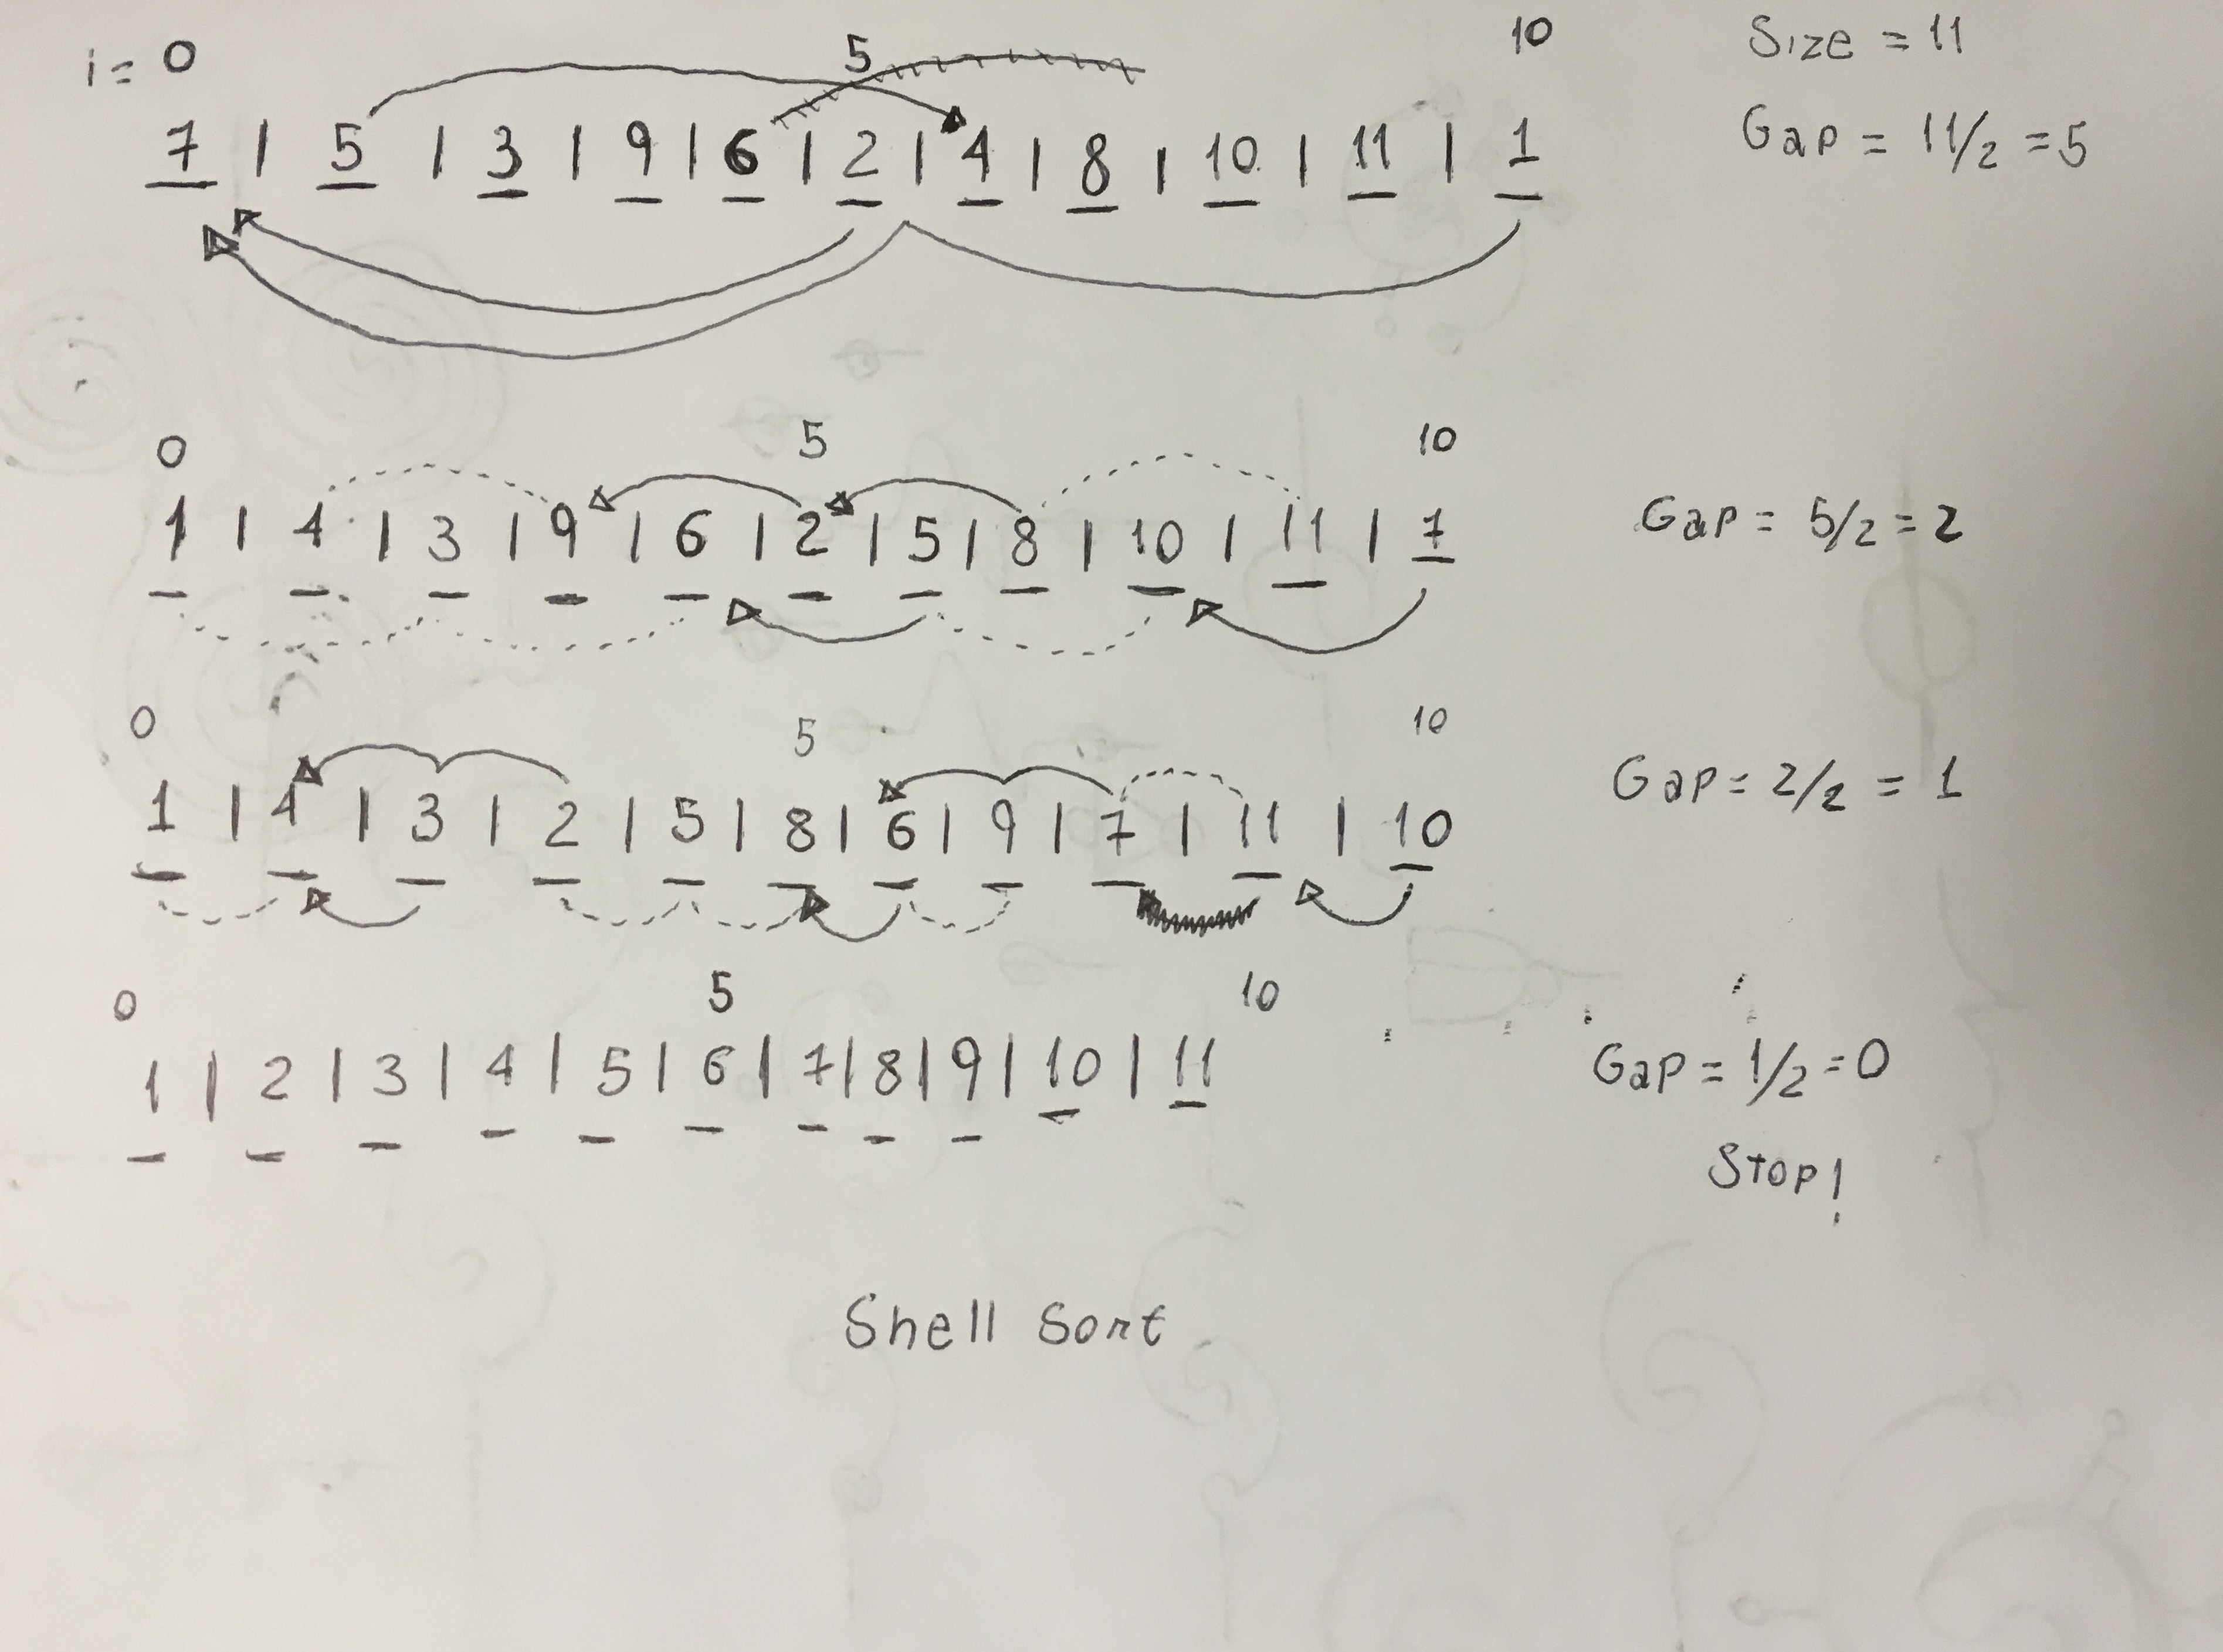 i= 0 5 10 Size = 11
7 | 5 | 3 | 9 | 6 | 2 | 4 | 8 | 10 | 11 | 1 Gap = 11/2 = 5
0 5 10
1 | 4 | 3 | 9 | 6 | 2 | 5 | 8 | 10 | 11 | 7 Gap = 5/2 = 2
0 5 10
1 | 4 | 3 | 2 | 5 | 8 | 6 | 9 | 7 | 11 | 10 Gap = 2/2 = 1
0 5 10
1 | 2 | 3 | 4 | 5 | 6 | 7 | 8 | 9 | 10 | 11 Gap = 1/2 = 0
Stop!
Shell Sort